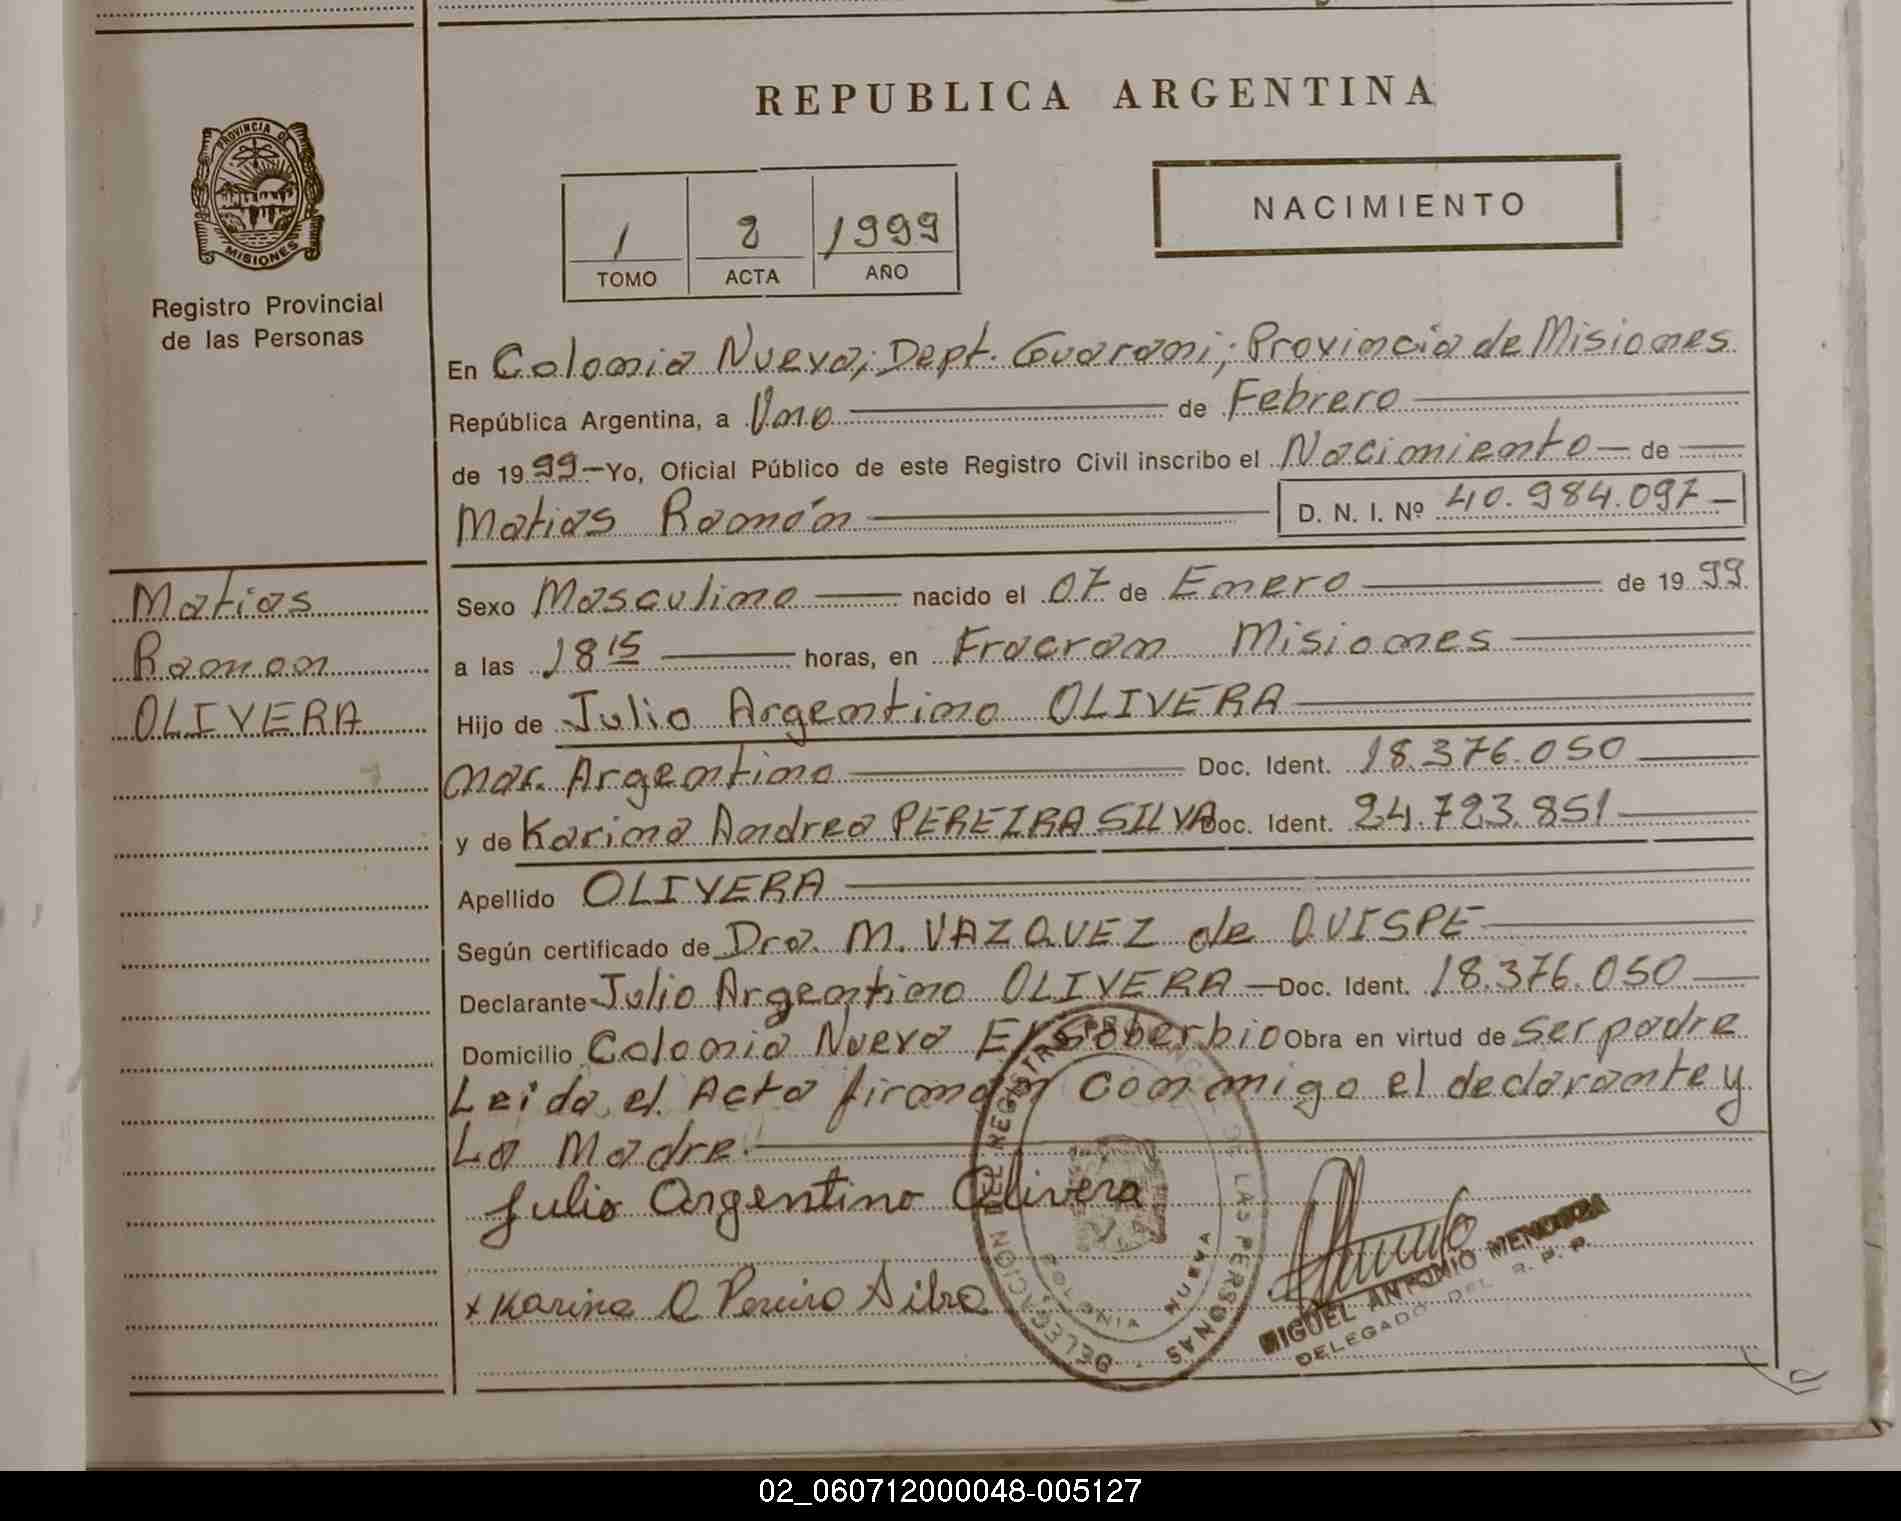 REPUBLICA ARGENTINA
PROVINCIA DE
MISIONES
Registro Provincial
de las Personas
1 8 1999
TOMO ACTA AÑO
NACIMIENTO
En Colonia Nueva; Dept. Guarani; Provincia de Misiones
República Argentina, a Uno de Febrero
de 1999 Yo, Oficial Público de este Registro Civil inscribo el Nacimiento de
Matias Ramón D. N. I. Nº 40.984.097
Matias
Ramon
OLIVERA
Sexo Masculino nacido el 07 de Enero de 1999
a las 18 15 horas, en Fracran Misiones
Hijo de Julio Argentino OLIVERA
nac. Argentino Doc. Ident. 18.376.050
y de Karina Andrea PEREIRA SILVA Doc. Ident. 24.723.851
Apellido OLIVERA
Según certificado de Dra. M. VAZQUEZ de QUISPE
Declarante Julio Argentino OLIVERA Doc. Ident. 18.376.050
Domicilio Colonia Nueva El Soberbio Obra en virtud de ser padre
Leida el Acta firman conmigo el declarante y
La Madre.
Julio Argentino Olivera
x Karina A Pereira Silva
DELEGACION DEL REGISTRO DE LAS PERSONAS
COLONIA NUEVA
MIGUEL ANTONIO MENDOZA
DELEGADO DEL R. P. P.
02_060712000048-005127